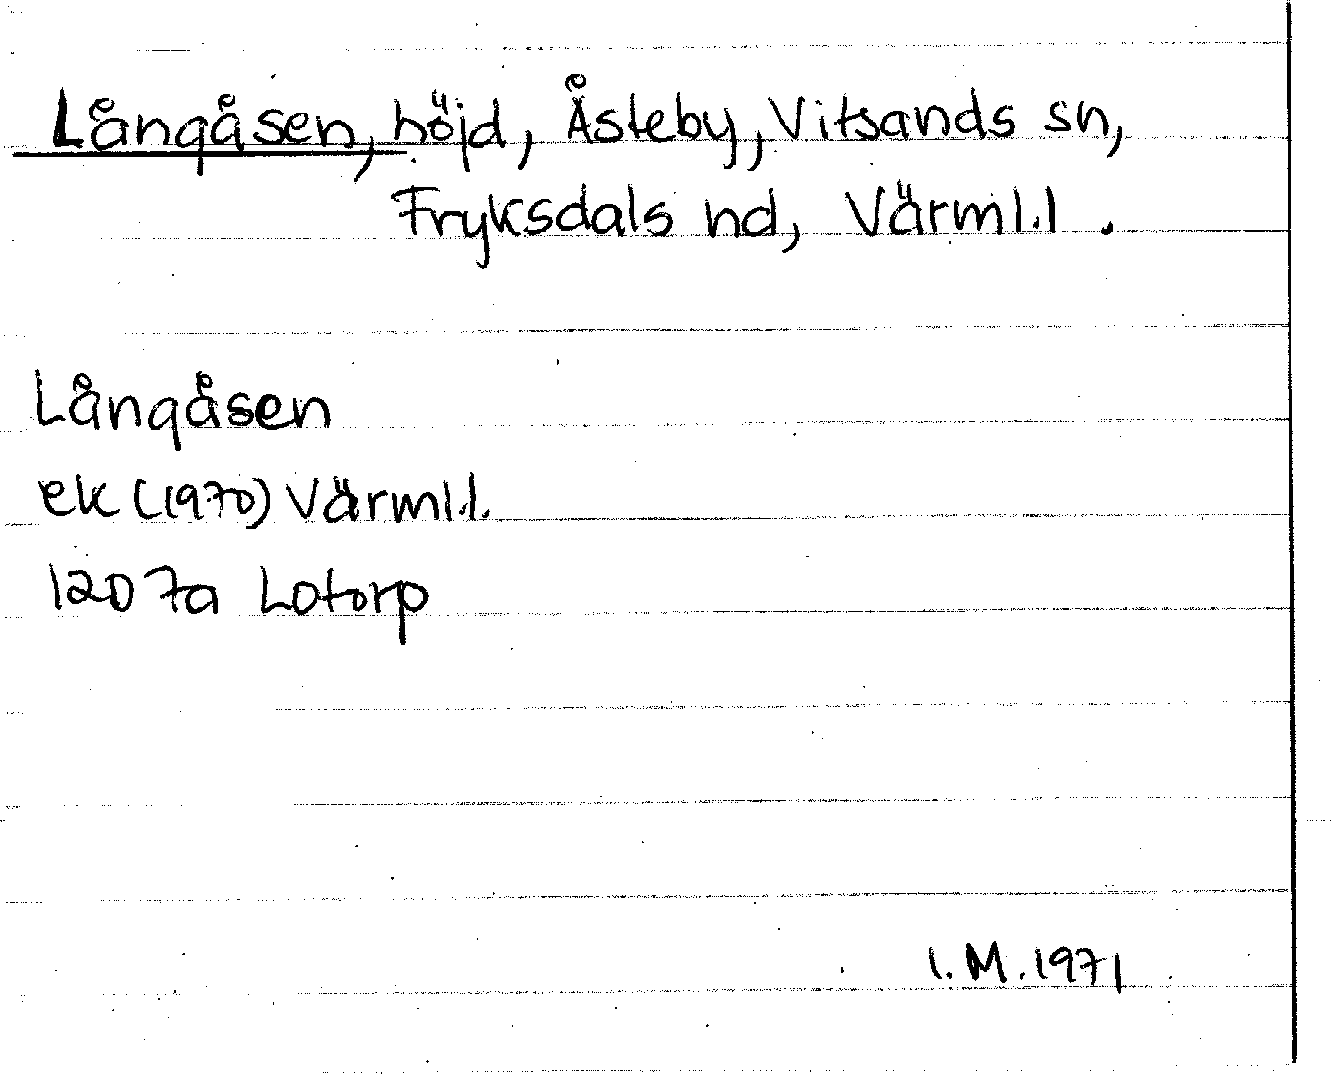 Långåsen, höjd, Åsteby, Vitsands sn,
Fryksdals hd, Värml.l.
Långåsen
ek (1970) Värml.l.
1207a Lotorp
I.M. 1971